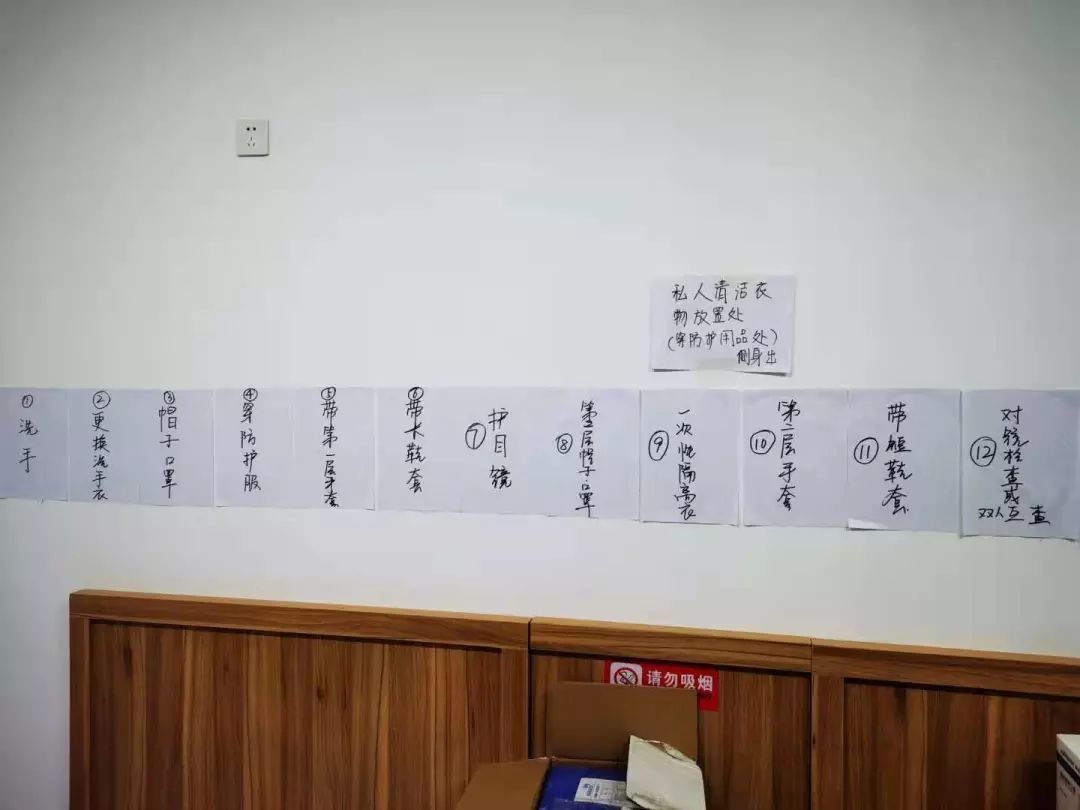 私人清洁衣
物放置处
(穿防护用品处)
侧身出
①洗手
②更换洗手衣
③帽子口罩
④穿防护服
⑤带第一层手套
⑥带长靴套
⑦护目镜
⑧第二层帽子口罩
⑨一次性隔离衣
⑩第二层手套
⑪带短靴套
⑫对镜检查或
双人互查
请勿吸烟